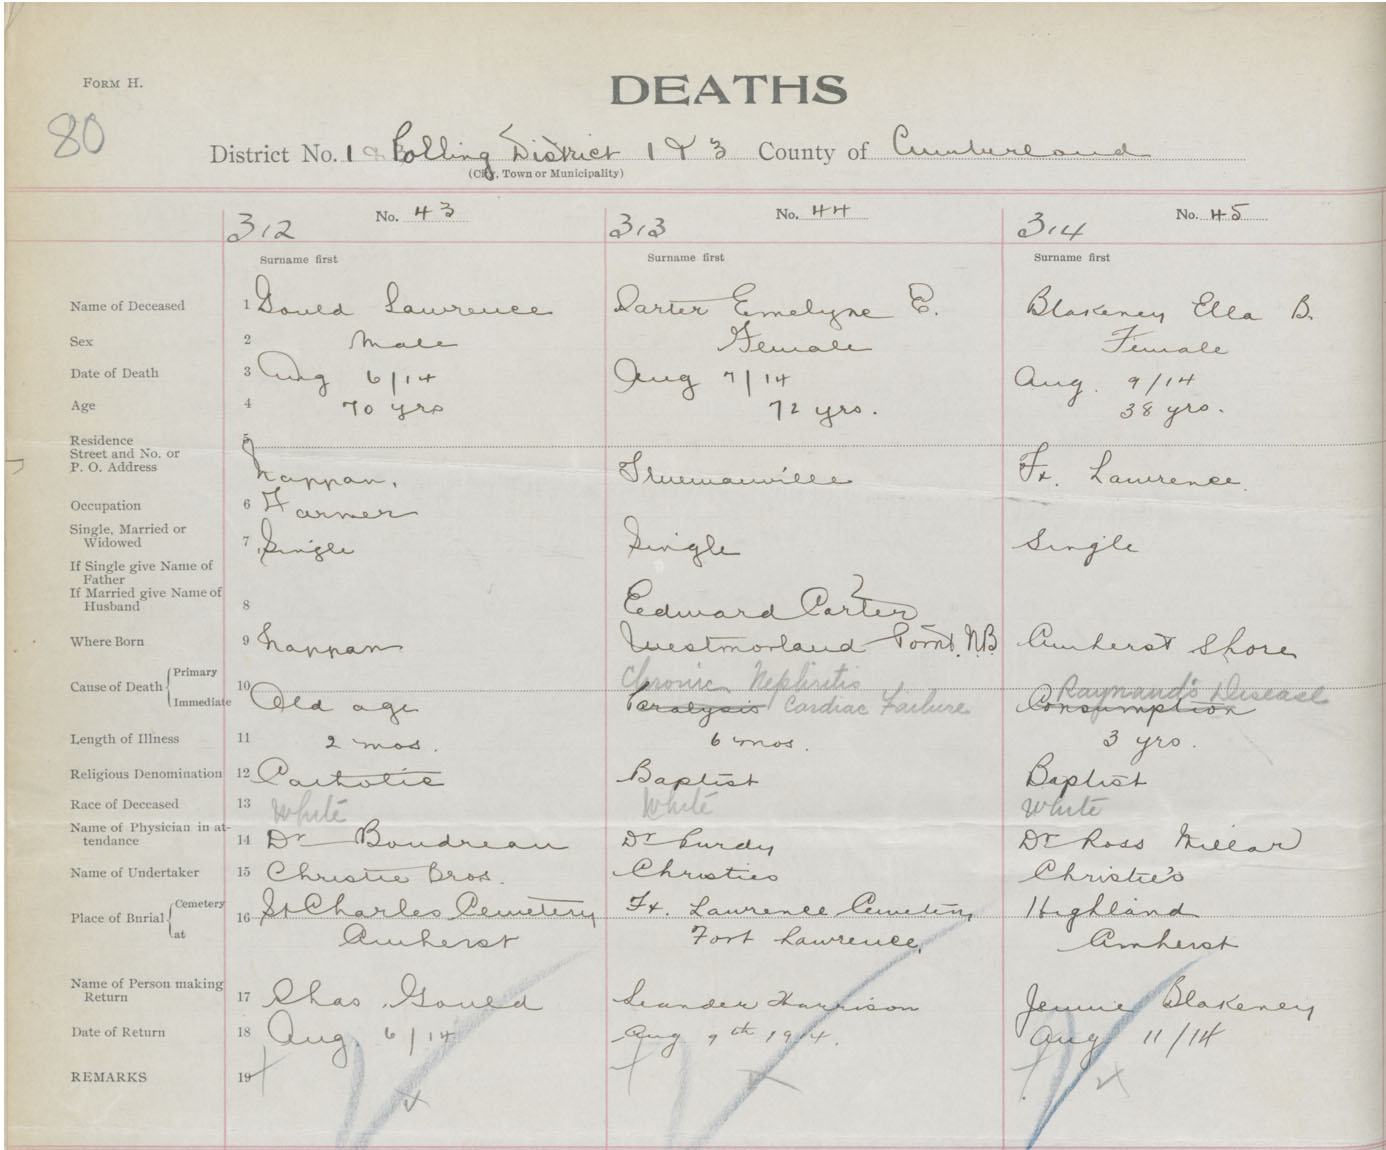 FORM H.
DEATHS
80
District No. 1 & 3 Polling District 1 & 3 County of Cumberland
(City, Town or Municipality)
312 No. 43 313 No. 44 314 No. 45
Surname first Surname first Surname first
Name of Deceased 1 Gould Lawrence Carter Emelyne E. Blakeney Ella B.
Sex 2 Male Female Female
Date of Death 3 Aug 6/14 Aug 7/14 Aug. 9/14
Age 4 70 yrs 72 yrs. 38 yrs.
Residence 5
Street and No. or
P. O. Address Nappan, Truemanville Ft. Lawrence.
Occupation 6 Farmer
Single, Married or
Widowed 7 Single Single Single
If Single give Name of
Father
If Married give Name of
Husband 8 Edward Carter ?
Where Born 9 Nappan Westmorland Point. N.B Amherst Shore
Chronic Nephritis
Cause of Death { Primary 10 Raynaud's Disease
Immediate Old age Paralysis Cardiac Failure Consumption
Length of Illness 11 2 mos. 6 mos. 3 yrs.
Religious Denomination 12 Catholic Baptist Baptist
Race of Deceased 13 White White White
Name of Physician in at-
tendance 14 Dr Boudreau Dr Purdy Dr Ross Millar
Name of Undertaker 15 Christie Bros. Christies Christie's
Place of Burial { Cemetery 16 St Charles Cemetery Ft. Lawrence Cemetery Highland
at Amherst Fort Lawrence, Amherst
Name of Person making
Return 17 Chas. Gould Leander Harrison Jennie Blakeney
Date of Return 18 Aug 6/14 Aug 9th 1914. Aug 11/14
REMARKS 19